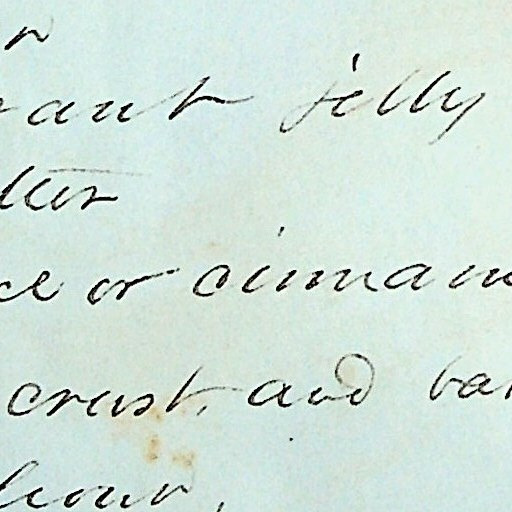 r
rant jelly
tter
ce or cinnam
crust, and bak
hour,